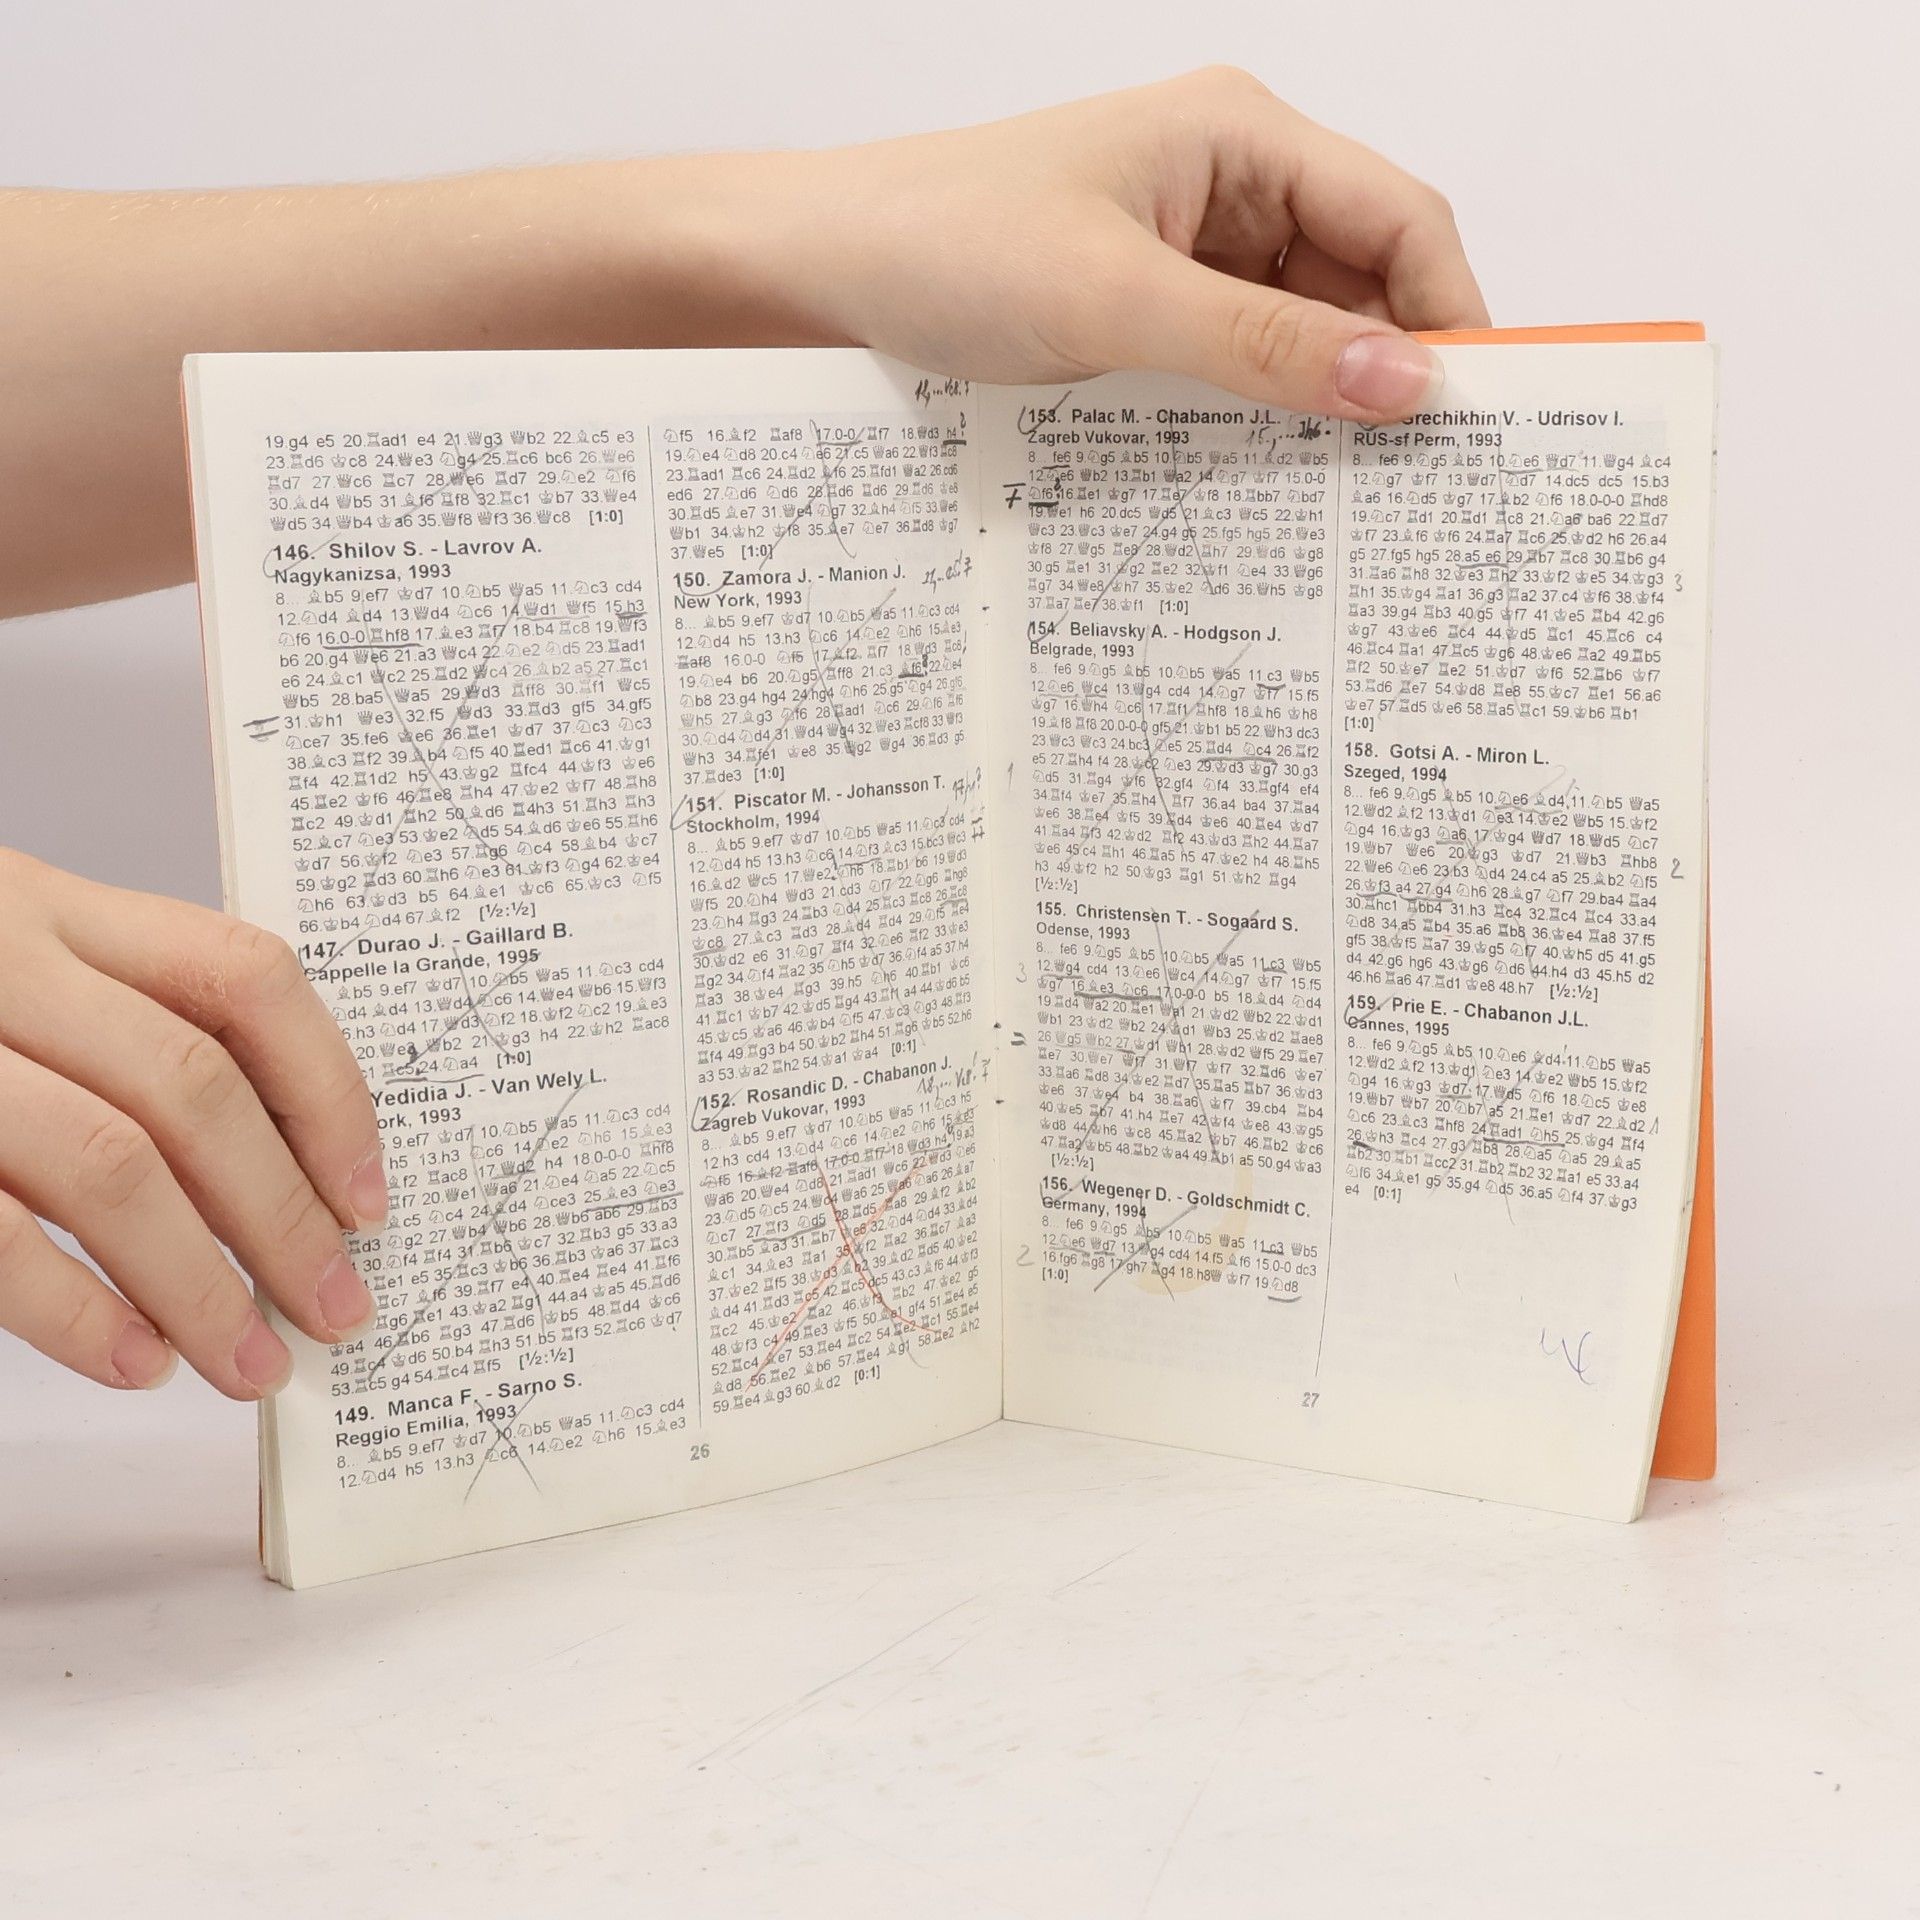 19.g4 e5 20.♖ad1 e4 21.♕g3 ♕b2 22.♗c5 e3
23.♖d6 ♔c8 24.♕e3 ♘g4 25.♖c6 bc6 26.♕e6
♖d7 27.♕c6 ♖c7 28.♕e6 ♖d7 29.♘e2 ♘f6
30.♗d4 ♕b5 31.♗f6 ♖f8 32.♖c1 ♔b7 33.♕e4
♕d5 34 ♕b4 ♔a6 35.♕f8 ♕f3 36.♕c8 [1:0]
146. Shilov S. - Lavrov A.
Nagykanizsa, 1993
8... ♗b5 9.ef7 ♔d7 10.♘b5 ♕a5 11.♘c3 cd4
12.♘d4 ♗d4 13.♕d4 ♘c6 14.♕d1 ♕f5 15.h3
♘f6 16.0-0 ♖hf8 17.♗e3 ♖f7 18.b4 ♖c8 19.♕f3
b6 20.g4 ♕e6 21.a3 ♕c4 22.♘e2 ♘d5 23.♖ad1
e6 24.♗c1 ♕c2 25.♖d2 ♕c4 26.♗b2 a5 27.♖c1
♕b5 28.ba5 ♕a5 29.♕d3 ♖ff8 30.♖f1 ♕c5
31.♔h1 ♕e3 32.f5 ♕d3 33.♖d3 gf5 34.gf5
♘ce7 35.fe6 ♔e6 36.♖e1 ♔d7 37.♘c3 ♘c3
38.♗c3 ♖f2 39.♗b4 ♘f5 40.♖ed1 ♖c6 41.♔g1
♖f4 42.♖1d2 h5 43.♔g2 ♖fc4 44.♔f3 ♔e6
45.♖e2 ♔f6 46.♖e8 ♖h4 47.♔e2 ♔f7 48.♖h8
♖c2 49.♔d1 ♖h2 50.♗d6 ♖4h3 51.♖h3 ♖h3
52.♗c7 ♘e3 53.♔e2 ♘d5 54.♗d6 ♔e6 55.♖h6
♔d7 56.♔f2 ♘e3 57.♖g6 ♘c4 58.♗b4 ♔c7
59.♔g2 ♖d3 60.♖h6 ♘e3 61.♔f3 ♘g4 62.♔e4
♘h6 63.♔d3 b5 64.♗e1 ♔c6 65.♔c3 ♘f5
66.♔b4 ♘d4 67.♗f2 [½:½]
147. Durao J. - Gaillard B.
Cappelle la Grande, 1995
♗b5 9.ef7 ♔d7 10.♘b5 ♕a5 11.♘c3 cd4
♘d4 ♗d4 13.♕d4 ♘c6 14.♕e4 ♕b6 15.♕f3
h3 ♘d4 17.♕d3 ♘f2 18.♔f2 ♘c2 19.♗e3
20.♕e3 ♕b2 21.♔g3 h4 22.♔h2 ♖ac8
♖c5 24.♘a4 [1:0]
Yedidia J. - Van Wely L.
ork, 1993
9.ef7 ♔d7 10.♘b5 ♕a5 11.♘c3 cd4
h5 13.h3 ♘c6 14.♘e2 ♘h6 15.♗e3
♗f2 ♖ac8 17.♕d2 h4 18.0-0-0 ♖hf8
♖f7 20.♕e1 ♕a6 21.♘e4 ♘a5 22.♘c5
♗c5 ♘c4 24.♗d4 ♘ce3 25.♗e3 ♘e3
♖d3 ♘g2 27.♕b4 ♕b6 28.♕b6 ab6 29.♖b3
30.♘f4 ♖f4 31.♖b6 ♔c7 32.♖b3 g5 33.a3
♖e1 e5 35.♖c3 ♔b6 36.♖b3 ♔a6 37.♖c3
♖c7 ♗f6 39.♖f7 e4 40.♖e4 ♖e4 41.♖f6
♖g6 ♖e1 43.♔a2 ♖g1 44.a4 ♔a5 45.♖d6
♔a4 46.♖b6 ♖g3 47.♖d6 ♔b5 48.♖d4 ♔c6
49.♖c4 ♔d6 50.b4 ♖h3 51.b5 ♖f3 52.♖c6 ♔d7
53.♖c5 g4 54.♖c4 ♖f5 [½:½]
149. Manca F. - Sarno S.
Reggio Emilia, 1993
8... ♗b5 9.ef7 ♔d7 10.♘b5 ♕a5 11.♘c3 cd4
12.♘d4 h5 13.h3 ♘c6 14.♘e2 ♘h6 15.♗e3
♘f5 16.♗f2 ♖af8 17.0-0 ♖f7 18.♕d3 h4
19.♘e4 ♘d8 20.c4 ♘e6 21.c5 ♕a6 22.♕f3 ♖c8
23.♖ad1 ♖c6 24.♖d2 ♗f6 25.♖fd1 ♕a2 26.cd6
ed6 27.♘d6 ♘d6 28.♖d6 ♖d6 29.♖d6 ♔e8
30.♖d5 ♗e7 31.♕e4 ♘g7 32.♗h4 ♘f5 33.♕e6
♕b1 34.♔h2 ♔f8 35.♗e7 ♘e7 36.♖d8 ♔g7
37.♕e5 [1:0]
150. Zamora J. - Manion J.
New York, 1993
8... ♗b5 9.ef7 ♔d7 10.♘b5 ♕a5 11.♘c3 cd4
12.♘d4 h5 13.h3 ♘c6 14.♘e2 ♘h6 15.♗e3
♖af8 16.0-0 ♘f5 17.♗f2 ♖f7 18.♕d3 ♖c8
19.♘e4 b6 20.♘g5 ♖ff8 21.c3 ♗f6 22.♘e4
♘b8 23.g4 hg4 24.hg4 ♘h6 25.g5 ♘g4 26.gf6
♕h5 27.♗g3 ♘f6 28.♖ad1 ♘c6 29.♘f6 ♖f6
30.♘d4 ♘d4 31.♕d4 ♕g4 32.♕e3 ♖cf8 33.♕f3
♕h3 34.♖fe1 ♔e8 35.♕g2 ♕g4 36.♖d3 g5
37.♖de3 [1:0]
151. Piscator M. - Johansson T.
Stockholm, 1994
8... ♗b5 9.ef7 ♔d7 10.♘b5 ♕a5 11.♘c3 cd4
12.♘d4 h5 13.h3 ♘c6 14.♘f3 ♗c3 15.bc3 ♕c3
16.♗d2 ♕c5 17.♕e2 ♘h6 18.♖b1 b6 19.♕d3
♕f5 20.♘h4 ♕d3 21.cd3 ♘f7 22.♘g6 ♖hg8
23.♘h4 ♖g3 24.♖b3 ♘d4 25.♖c3 ♖c8 26.♖c8
♔c8 27.♗c3 ♖d3 28.♗d4 ♖d4 29.♘f5 ♖e4
30.♔d2 e6 31.♘g7 ♖f4 32.♘e6 ♖f2 33.♔e3
♖g2 34.♘f4 ♖a2 35.♘h5 ♔d7 36.♘f4 a5 37.h4
♖a3 38.♔e4 ♖g3 39.h5 ♘h6 40.♖b1 ♔c6
41.♖c1 ♔b7 42.♔d5 ♖g4 43.♖f1 a4 44.♔d6 b5
45.♔c5 ♔a6 46.♔b4 ♘f5 47.♔c3 ♘g3 48.♖f3
♖f4 49.♖g3 b4 50.♔b2 ♖h4 51.♖g6 ♔b5 52.h6
a3 53.♔a2 ♖h2 54.♔a1 ♔a4 [0:1]
152. Rosandic D. - Chabanon J.
Zagreb Vukovar, 1993
8... ♗b5 9.ef7 ♔d7 10.♘b5 ♕a5 11.♘c3 h5
12.h3 cd4 13.♘d4 ♘c6 14.♘e2 ♘h6 15.♗e3
♘f5 16.♗f2 ♖af8 17.0-0 ♖f7 18.♕d3 h4 19.a3
♕a6 20.♕e4 ♘d8 21.♖ad1 ♔c6 22.♕d3 ♘e6
23.♘d5 ♘c5 24.♕c4 ♕a6 25.♕a6 ♘a6 26.♗a7
♘c7 27.♖f3 ♘d5 28.♖d5 ♖a8 29.♗f2 ♗b2
30.♖b5 ♗a3 31.♖b7 ♔e6 32.♘d4 ♘d4 33.♗d4
♗c1 34.♗e3 ♖a1 35.♔f2 ♖a2 36.♖c7 ♗a3
37.♔e2 ♖f5 38.♔d3 ♗b2 39.♗d2 ♖d5 40.♔e2
♗d4 41.♖d3 ♖c5 42.♖c5 dc5 43.c3 ♗f6 44.♔f3
♖c2 45.♔e2 ♖a2 46.♔f3 ♖b2 47.♔e2 g5
48.♔f3 c4 49.♖e3 ♔f5 50.♗e1 gf4 51.♖e4 e5
52.♖c4 ♗e7 53.♖e4 ♖c2 54.♖e2 ♖c1 55.♖e4
♗d8 56.♖e2 ♗b6 57.♖e4 ♗g1 58.♖e2 ♗h2
59.♖e4 ♗g3 60.♗d2 [0:1]
26
153. Palac M. - Chabanon J.L.
Zagreb Vukovar, 1993
15.,...♘h6.
8... fe6 9.♘g5 ♗b5 10.♘b5 ♕a5 11.♗d2 ♕b5
12.♘e6 ♕b2 13.♖b1 ♕a2 14.♘g7 ♔f7 15.0-0
♘f6 16.♖e1 ♔g7 17.♖e7 ♔f8 18.♖bb7 ♘bd7
19.♕e1 h6 20.dc5 ♕d5 21.♗c3 ♕c5 22.♔h1
♕c3 23.♕c3 ♔e7 24.g4 g5 25.fg5 hg5 26.♕e3
♔f8 27.♕g5 ♖e8 28.♕d2 ♖h7 29.♕d6 ♔g8
30.g5 ♖e1 31.♔g2 ♖e2 32.♔f1 ♘e4 33.♕g6
♖g7 34.♕e8 ♔h7 35.♔e2 ♘d6 36.♕h5 ♔g8
37.♖a7 ♖e7 38.♔f1 [1:0]
154. Beliavsky A. - Hodgson J.
Belgrade, 1993
8... fe6 9.♘g5 ♗b5 10.♘b5 ♕a5 11.c3 ♕b5
12.♘e6 ♕c4 13.♕g4 cd4 14.♘g7 ♔f7 15.f5
♔g7 16.♕h4 ♘c6 17.♖f1 ♖hf8 18.♗h6 ♔h8
19.♗f8 ♖f8 20.0-0-0 gf5 21.♔b1 b5 22.♕h3 dc3
23.♕c3 ♕c3 24.bc3 ♘e5 25.♖d4 ♘c4 26.♖f2
e5 27.♖h4 f4 28.♔c2 ♘e3 29.♔d3 ♔g7 30.g3
♘d5 31.♖g4 ♔f6 32.gf4 ♘f4 33.♖gf4 ef4
34.♖f4 ♔e7 35.♖h4 ♖f7 36.a4 ba4 37.♖a4
♔e6 38.♖e4 ♔f5 39.♖d4 ♔e6 40.♖e4 ♔d7
41.♖a4 ♖f3 42.♔d2 ♖f2 43.♔d3 ♖h2 44.♖a7
♔e6 45.c4 ♖h1 46.♖a5 h5 47.♔e2 h4 48.♖h5
h3 49.♔f2 h2 50.♔g3 ♖g1 51.♔h2 ♖g4
[½:½]
155. Christensen T. - Sogaard S.
Odense, 1993
8... fe6 9.♘g5 ♗b5 10.♘b5 ♕a5 11.c3 ♕b5
12.♕g4 cd4 13.♘e6 ♕c4 14.♘g7 ♔f7 15.f5
♔g7 16.♗e3 ♘c6 17.0-0-0 b5 18.♗d4 ♘d4
19.♖d4 ♕a2 20.♖e1 ♕a1 21.♔d2 ♕b2 22.♔d1
♕b1 23.♔d2 ♕b2 24.♔d1 ♕b3 25.♔d2 ♖ae8
26.♕g5 ♕b2 27.♔d1 ♕b1 28.♔d2 ♕f5 29.♖e7
♖e7 30.♕e7 ♕f7 31.♕f7 ♔f7 32.♖d6 ♔e7
33.♖a6 ♖d8 34.♔e2 ♖d7 35.♖a5 ♖b7 36.♔d3
♔e6 37.♔e4 b4 38.♖a6 ♔f7 39.cb4 ♖b4
40.♔e5 ♖b7 41.h4 ♖e7 42.♔f4 ♔e8 43.♔g5
♔d8 44.♔h6 ♔c8 45.♖a2 ♔b7 46.♖b2 ♔c6
47.♖a2 ♔b5 48.♖b2 ♔a4 49.♖b1 a5 50.g4 ♔a3
[½:½]
156. Wegener D. - Goldschmidt C.
Germany, 1994
8... fe6 9.♘g5 ♗b5 10.♘b5 ♕a5 11.c3 ♕b5
12.♘e6 ♕d7 13.♕g4 cd4 14.f5 ♗f6 15.0-0 dc3
16.fg6 ♖g8 17.gh7 ♖g4 18.h8♕ ♔f7 19.♘d8
[1:0]
rechikhin V. - Udrisov I.
RUS-sf Perm, 1993
8... fe6 9.♘g5 ♗b5 10.♘e6 ♕d7 11.♕g4 ♗c4
12.♘g7 ♔f7 13.♕d7 ♘d7 14.dc5 dc5 15.b3
♗a6 16.♘d5 ♔g7 17.♗b2 ♘f6 18.0-0-0 ♖hd8
19.♘c7 ♖d1 20.♖d1 ♖c8 21.♘a6 ba6 22.♖d7
♔f7 23.♗f6 ♔f6 24.♖a7 ♖c6 25.♔d2 h6 26.a4
g5 27.fg5 hg5 28.a5 e6 29.♖b7 ♖c8 30.♖b6 g4
31.♖a6 ♖h8 32.♔e3 ♖h2 33.♔f2 ♔e5 34.♔g3
♖h1 35.♔g4 ♖a1 36.g3 ♖a2 37.c4 ♔f6 38.♔f4
♖a3 39.g4 ♖b3 40.g5 ♔f7 41.♔e5 ♖b4 42.g6
♔g7 43.♔e6 ♖c4 44.♔d5 ♖c1 45.♖c6 c4
46.♖c4 ♖a1 47.♖c5 ♔g6 48.♔e6 ♖a2 49.♖b5
♖f2 50.♔e7 ♖e2 51.♔d7 ♔f6 52.♖b6 ♔f7
53.♖d6 ♖e7 54.♔d8 ♖e8 55.♔c7 ♖e1 56.a6
♔e7 57.♖d5 ♔e6 58.♖a5 ♖c1 59.♔b6 ♖b1
[1:0]
3
158. Gotsi A. - Miron L.
Szeged, 1994
8... fe6 9.♘g5 ♗b5 10.♘e6 ♗d4 11.♘b5 ♕a5
12.♕d2 ♗f2 13.♔d1 ♘e3 14.♔e2 ♕b5 15.♔f2
♘g4 16.♔g3 ♘a6 17.♔g4 ♕d7 18.♕d5 ♘c7
19.♕b7 ♕e6 20.♔g3 ♔d7 21.♕b3 ♖hb8
22.♕e6 ♘e6 23.b3 ♘d4 24.c4 a5 25.♗b2 ♘f5
26.♔f3 a4 27.g4 ♘h6 28.♗g7 ♘f7 29.ba4 ♖a4
30.♖hc1 ♖bb4 31.h3 ♖c4 32.♖c4 ♖c4 33.a4
♘d8 34.a5 ♖b4 35.a6 ♖b8 36.♔e4 ♖a8 37.f5
gf5 38.♔f5 ♖a7 39.♔g5 ♘f7 40.♔h5 d5 41.g5
d4 42.g6 hg6 43.♔g6 ♘d6 44.h4 d3 45.h5 d2
46.h6 ♖a6 47.♖d1 ♔e8 48.h7 [½:½]
2
159. Prie E. - Chabanon J.L.
Cannes, 1995
8... fe6 9.♘g5 ♗b5 10.♘e6 ♗d4 11.♘b5 ♕a5
12.♕d2 ♗f2 13.♔d1 ♘e3 14.♔e2 ♕b5 15.♔f2
♘g4 16.♔g3 ♔d7 17.♕d5 ♘f6 18.♘c5 ♔e8
19.♕b7 ♕b7 20.♘b7 a5 21.♖e1 ♔d7 22.♗d2
♘c6 23.♗c3 ♖hf8 24.♖ad1 ♘h5 25.♔g4 ♖f4
26.♔h3 ♖c4 27.g3 ♖b8 28.♘a5 ♘a5 29.♗a5
♖b2 30.♖b1 ♖cc2 31.♖b2 ♖b2 32.♖a1 e5 33.a4
♘f6 34.♗e1 g5 35.g4 ♘d5 36.a5 ♘f4 37.♔g3
e4 [0:1]
27